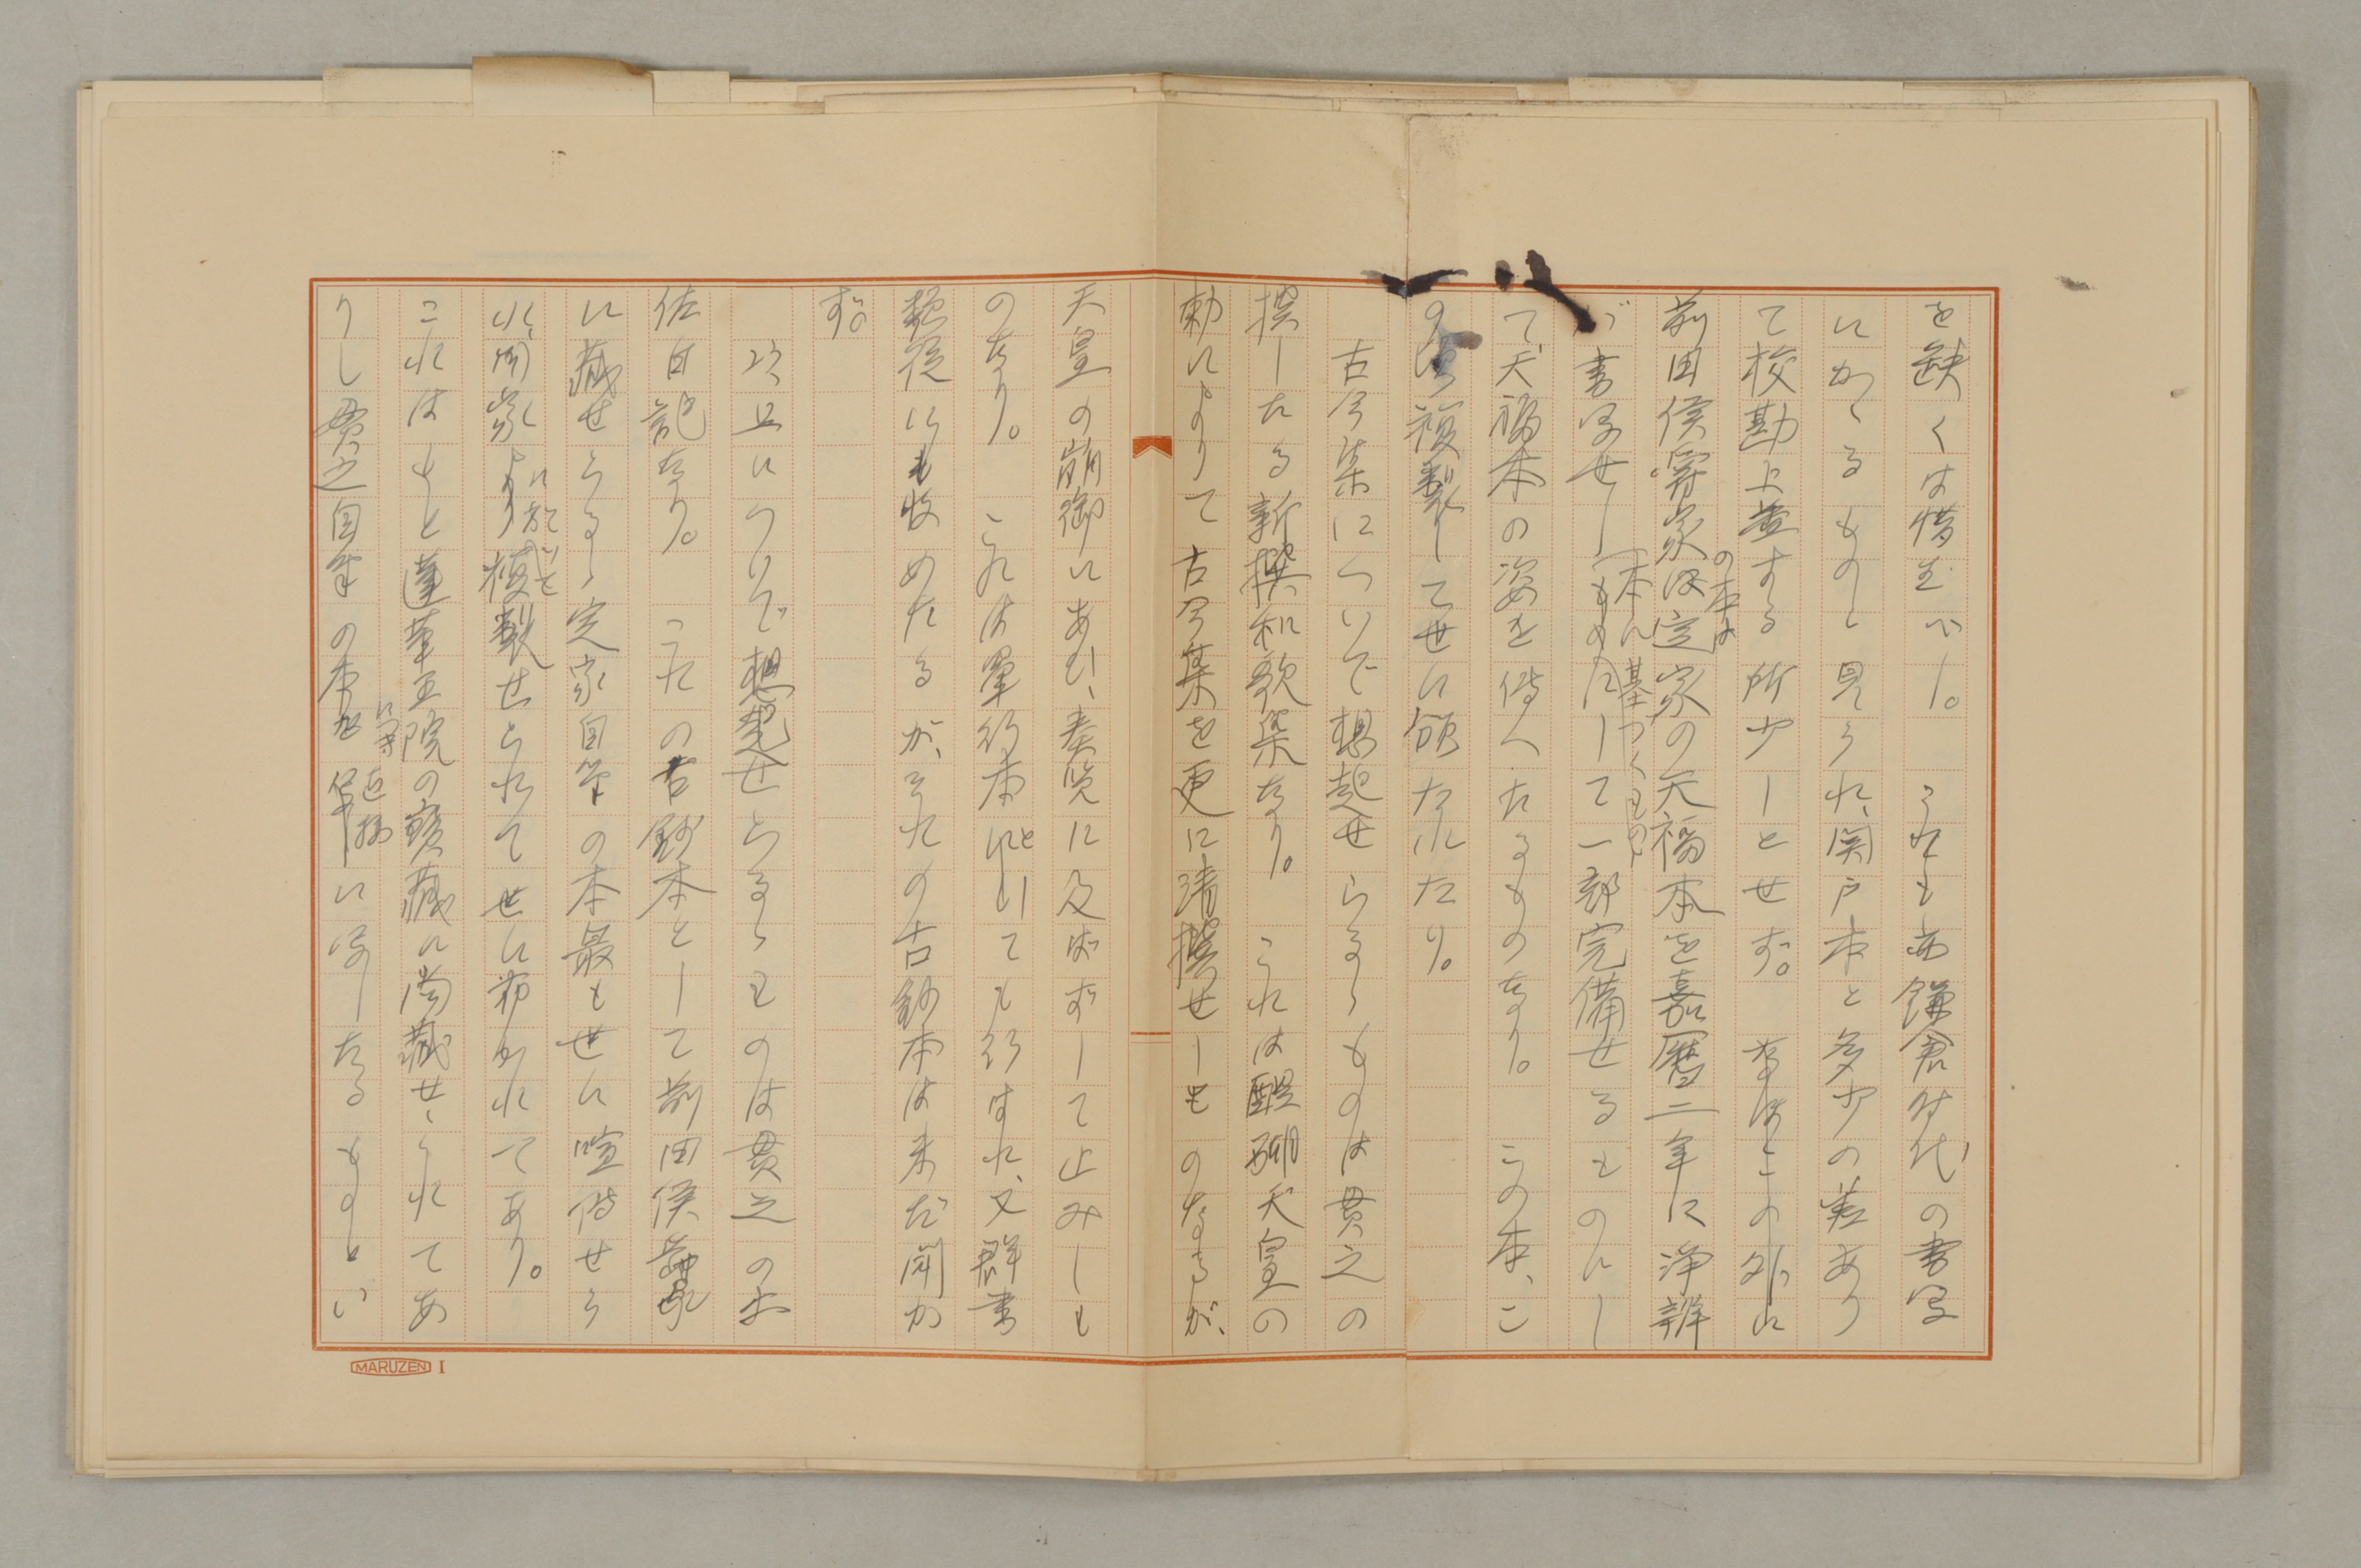 を缺くは惜むべし。これも亦鎌倉時代の書写
にかゝるものと見られ、関戸本と多少の差あり
て校勘上益する所少しとせず。なほこの外に
前田侯爵家の本は定家の天福本を嘉暦二年に浄辨
が書写せし一本に基づくものにして一部完備せるものにし
て、天福本の姿を傳へたるものなり。この本、こ
の頃複製して世に頒たれたり。
古今集について想起せらるゝものは貫之の
撰したる新撰和歌集なり。これは醍醐天皇の
勅によりて古今集を更に精撰せしものなるが、
天皇の崩御にあひ、奏覧に及ばずして止みしも
のなり。これは單行本としても行はれ、又群書
類従にも收めたるが、それの古鈔本は未だ聞か
ず。
次にについで想起せらるゝものは貫之の土
佐日記なり。これの古鈔本として前田侯爵家
に藏せらるゝ定家自筆の本最も世に喧傳せら
れ、同家に於いて複製せられて世に布かれてあり。
これはもと蓮華王院の寶藏に尚藏せられてあ
りし貫之自筆の本に等し近接に写したるものとい
MARUZEN I